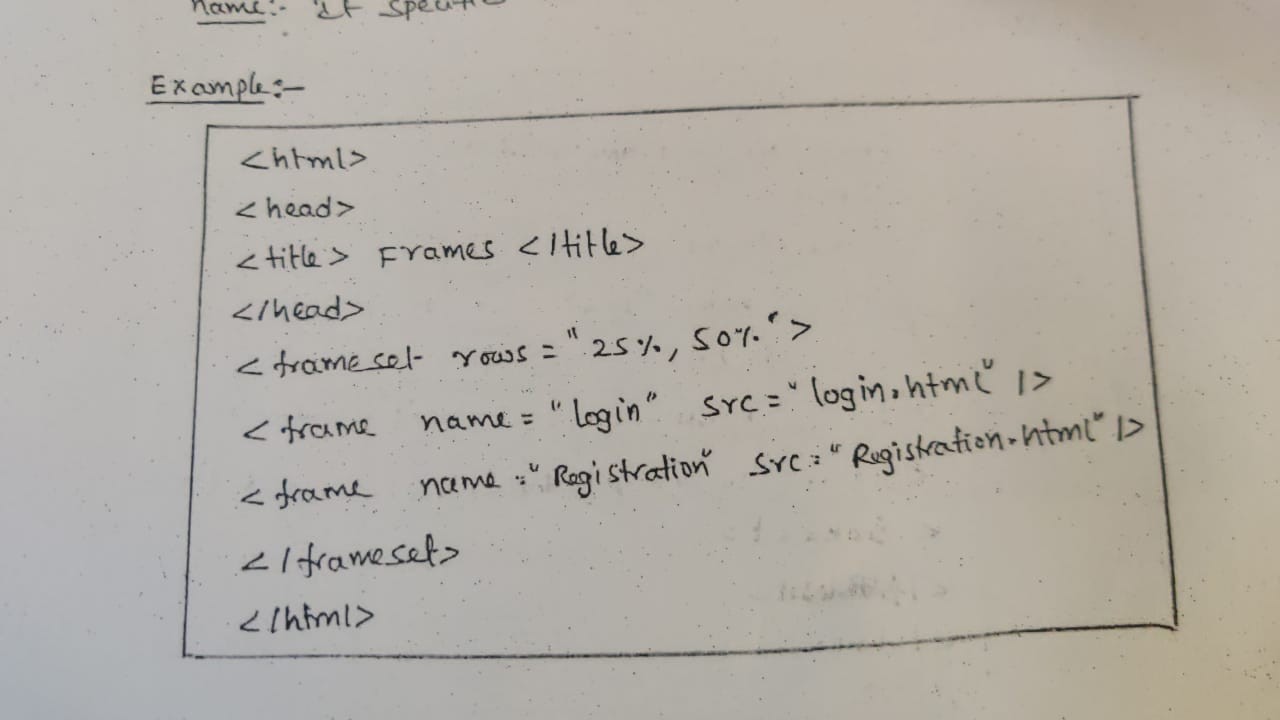 name:- It
Example:-
<html>
<head>
<title> Frames </title>
</head>
<frameset rows = "25%, 50%">
<frame name = "login" src = "login.html" />
<frame name = "Registration" src = "Registration.html" />
</frameset>
</html>